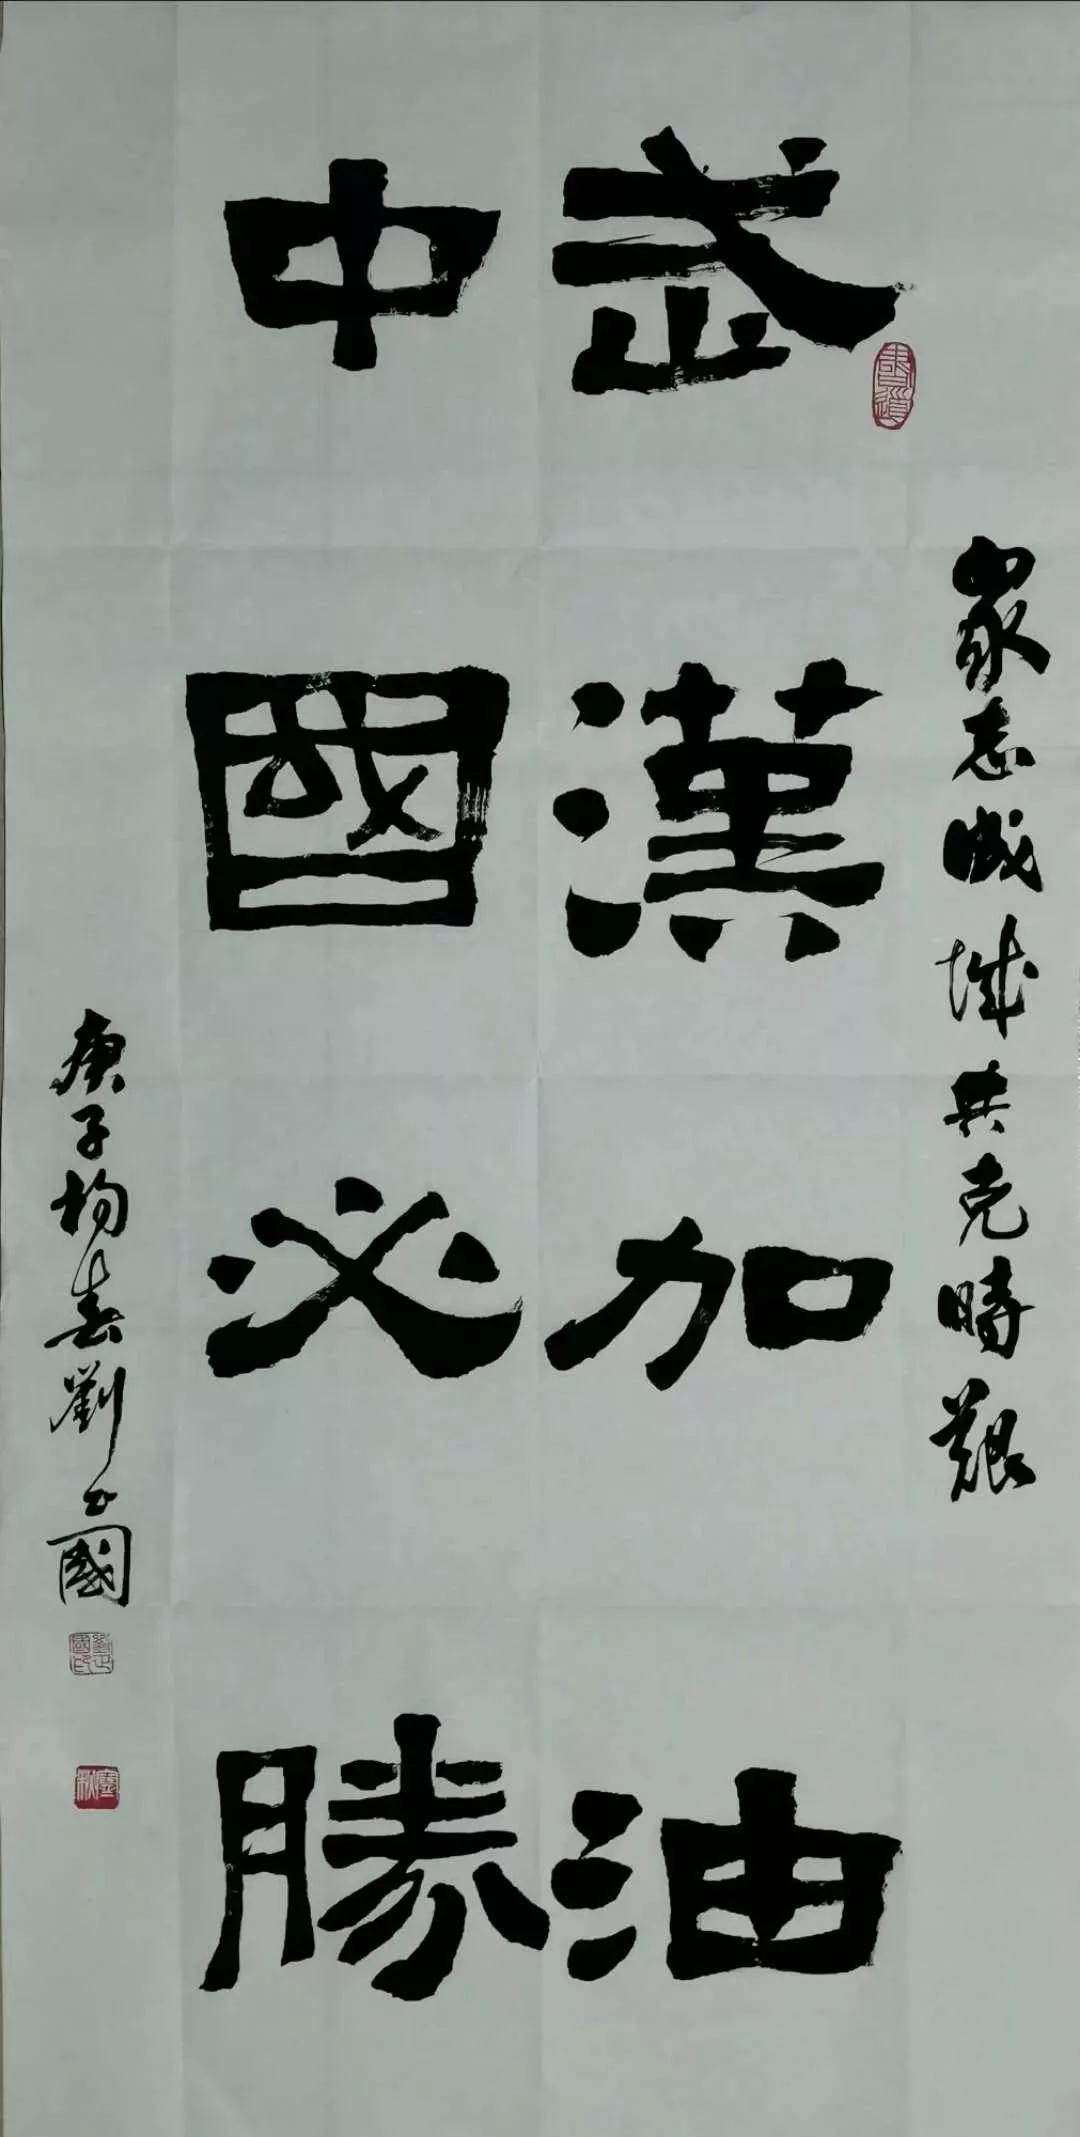 眾志成城共克時艱
武漢加油
中國必勝
庚子初春劉正國
書道